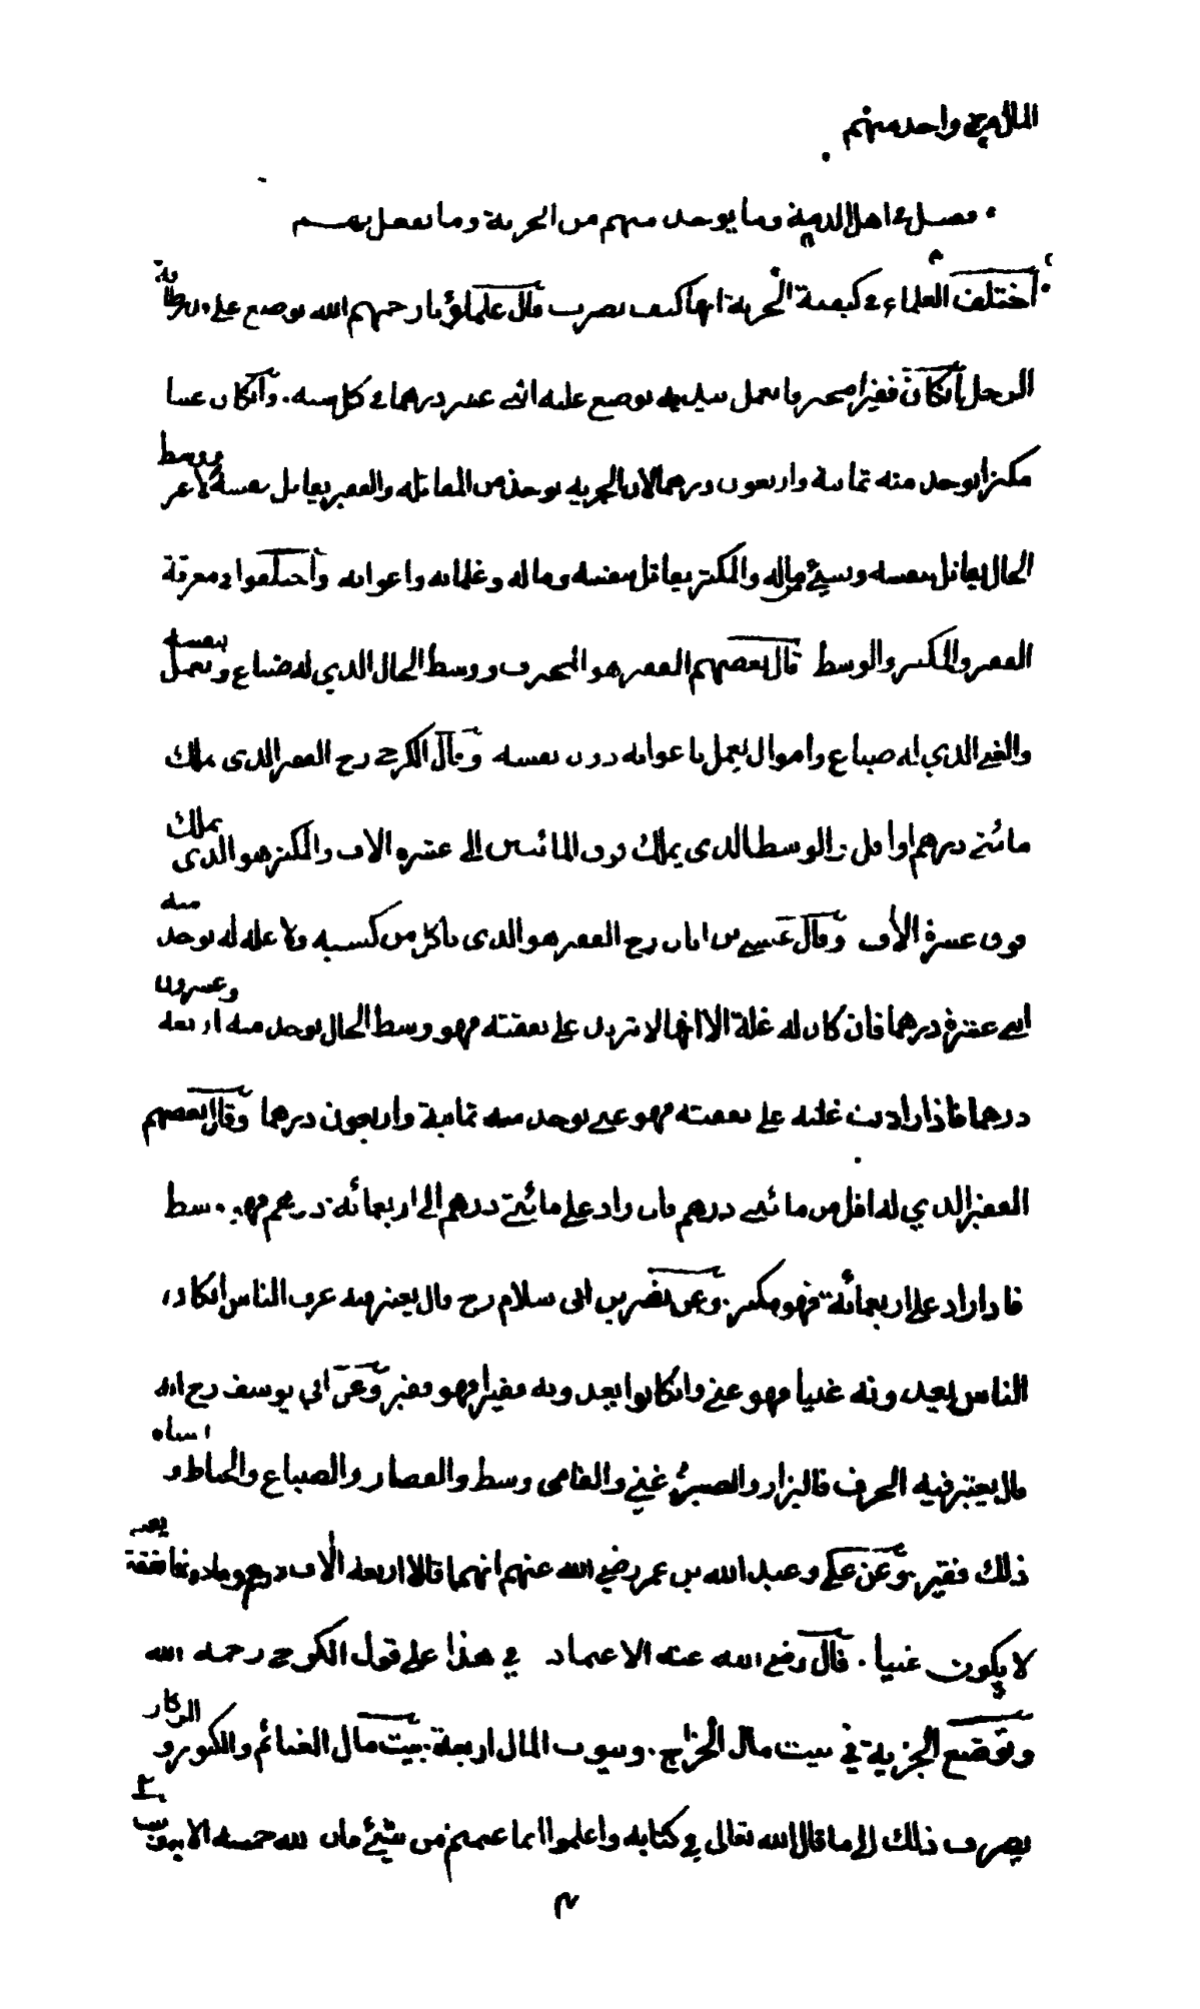 المال من واحد منهم
فصل في اهل الذمة وما يوخذ منهم من الجزية وما يفعل بهم
اختلف العلماء في كيفية الجزية انها كيف تضرب قال علماؤنا رحمهم الله توضع على
الرجل انكان فقيرا محترفا يعمل بيديه توضع عليه اثنى عشر درهما في كل سنه. وانكان غنيا
مكثرا يوخذ منه ثمانية واربعون درهما لان الجزيه توخذ من المقاتله والفقير يقاتل بنفسه لا غير ووسط
الحال يقاتل بنفسه وبشئ من ماله والمكثر يقاتل بنفسه وماله وغلمانه واعوانه واختلفوا في معرفة
الفقير والمكثر والوسط قال بعضهم الفقير هو المحترف ووسط الحال الذي له ضياع ويعمل بنفسه
والغني الذي له ضياع واموال يعمل باعوانه دون نفسه وقال الكرخي رح الفقير الذى ملك
مائتي درهم او اقل والوسط الذى يملك فوق المائتين الى عشره الاف والمكثر هو الذى يملك
فوق عشرة الآف وقال عيسى بن ابان رح الفقير هو الذى ياكل من كسبه ولا غله له يوخذ منه
اثنى عشرة درهما فان كان له غلة الا انها لا تزيد على نفقته فهو وسط الحال يوخذ منه اربعه وعشرون
درهما فاذا زادت غلته على نفقته فهو غني يوخذ منه ثمانية واربعون درهما وقال بعضهم
الفقير الذي له اقل من مائتي درهم فان زاد على مائتي درهم الى اربعمائة درهم فهو وسط
فاذا زاد على اربعمائة فهو مكثر. وعن نضر بن ابى سلام رح قال يعتبر فيه عرف الناس انكان
الناس يعدونه غنيا فهو غني وانكانوا يعدونه فقيرا فهو فقير وعن ابي يوسف رح الله
قال يعتبر فيه الحرف فالبزاز والصيرفي غني والفامى وسط والقصار والصباغ والخياط و اشباه
ذلك فقير وعن علي وعبد الله بن عمر رضي الله عنهم انهما قالا اربعه الآف درهم وما دونها نفقة يعنى
لا يكون غنيا. قال رضي الله عنه الاعتماد في هذا على قول الكرخي رحمه الله
وتوضع الجزية في بيت مال الخراج. وبيوت المال اربعة. بيت مال الغنائم والكنوز و الركاز
يصرف ذلك الى ما قال الله تعالى في كتابه واعلموا انما غنمتم من شئ فان لله خمسه الاية